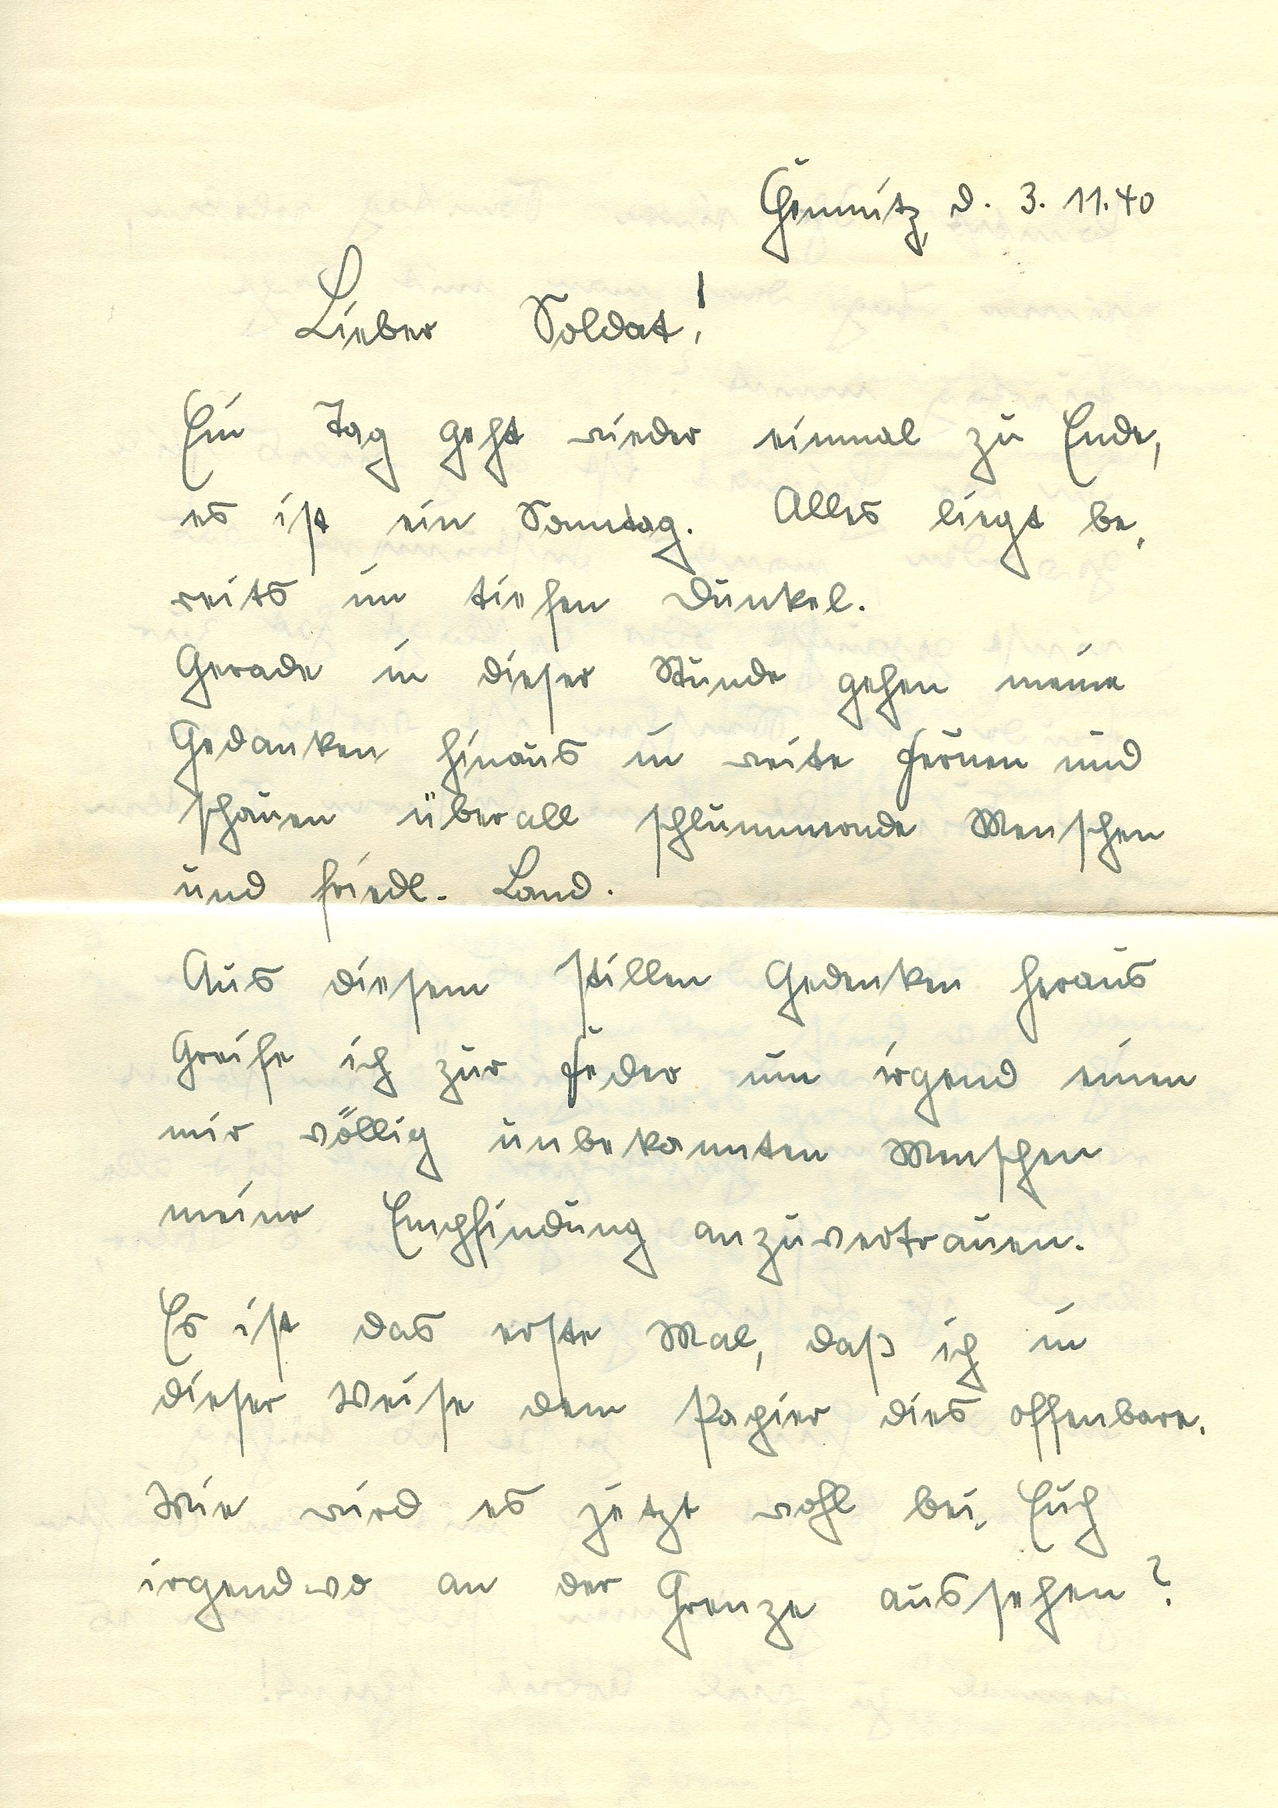 Chemnitz, d. 3. 11. 40
Lieber Soldat!
Ein Tag geht wieder einmal zu Ende,
es ist ein Sonntag. Alles liegt be-
reits im tiefen Dunkel.
Gerade in dieser Stunde gehen meine
Gedanken hinaus in weite Fernen und
schauen überall schlummernde Menschen
und friedl. Land.
Aus diesem stillen Gedenken heraus
Greife ich zur Feder um irgend einen
mir völlig unbekannten Menschen
meine Empfindung anzuvertrauen.
Es ist das erste Mal, daß ich in
dieser Weise dem Papier dies offenbare.
Wie wird es jetzt wohl bei Euch
irgendwo an der Grenze aussehen?